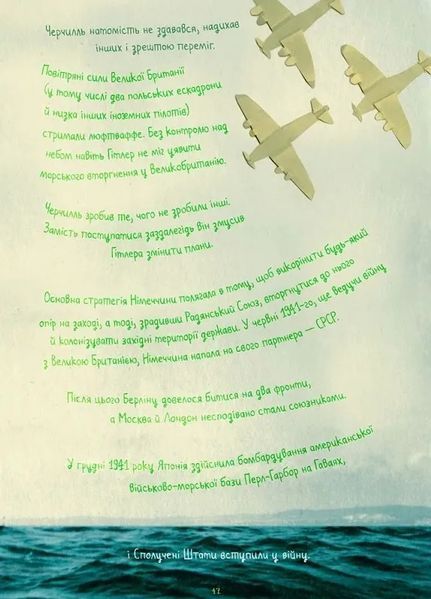 Черчилль натомість не здавався, надихав
інших і зрештою переміг.
Повітряні сили Великої Британії
(у тому числі два польських ескадрони
й низка інших іноземних пілотів)
стримали люфтваффе. Без контролю над
небом навіть Гітлер не міг уявити
морського вторгнення у Великобританію.
Черчилль зробив те, чого не зробили інші.
Замість поступатися заздалегідь він змусив
Гітлера змінити плани.
Основна стратегія Німеччини полягала в тому, щоб викорінити будь-який
опір на заході, а тоді, зрадивши Радянський Союз, вторгнутися до нього
й колонізувати західні території держави. У червні 1941-го, ще ведучи війну
з Великою Британією, Німеччина напала на свого партнера — СРСР.
Після цього Берліну довелося битися на два фронти,
а Москва й Лондон несподівано стали союзниками.
У грудні 1941 року Японія здійснила бомбардування американської
військово-морської бази Перл-Гарбор на Гаваях,
і Сполучені Штати вступили у війну.
17